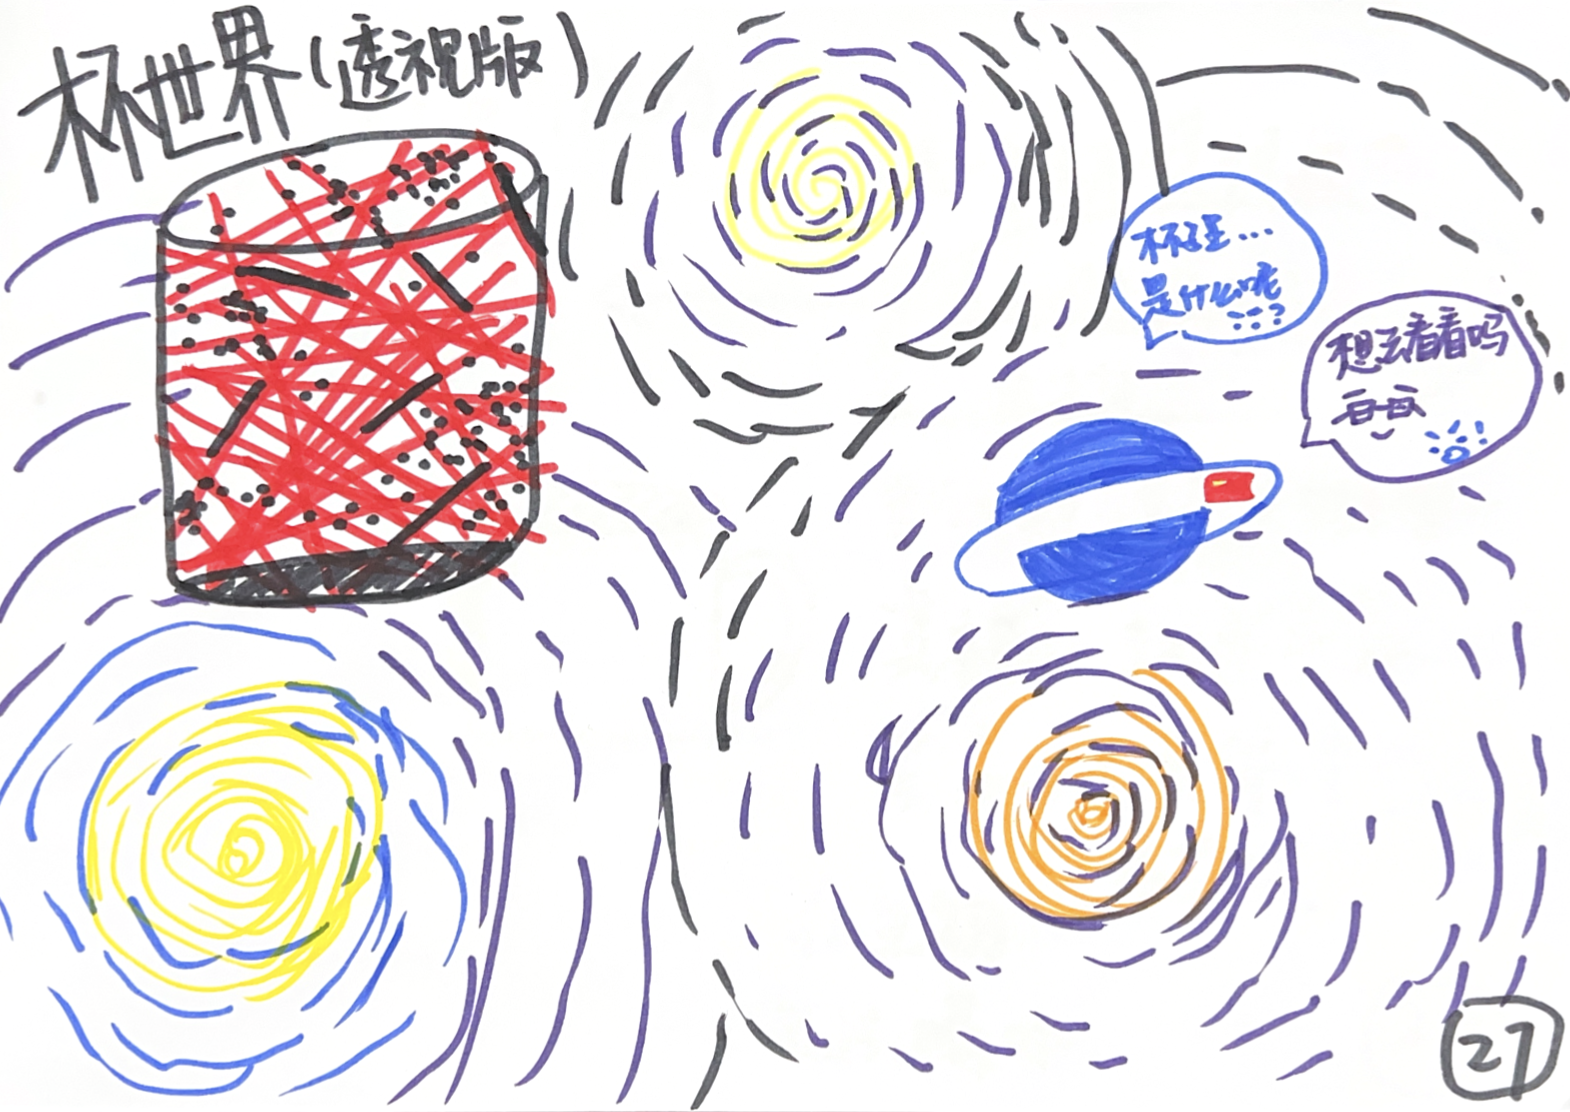 杯世界(透视版)
杯子里…
是什么呢
?
想去看看吗
27